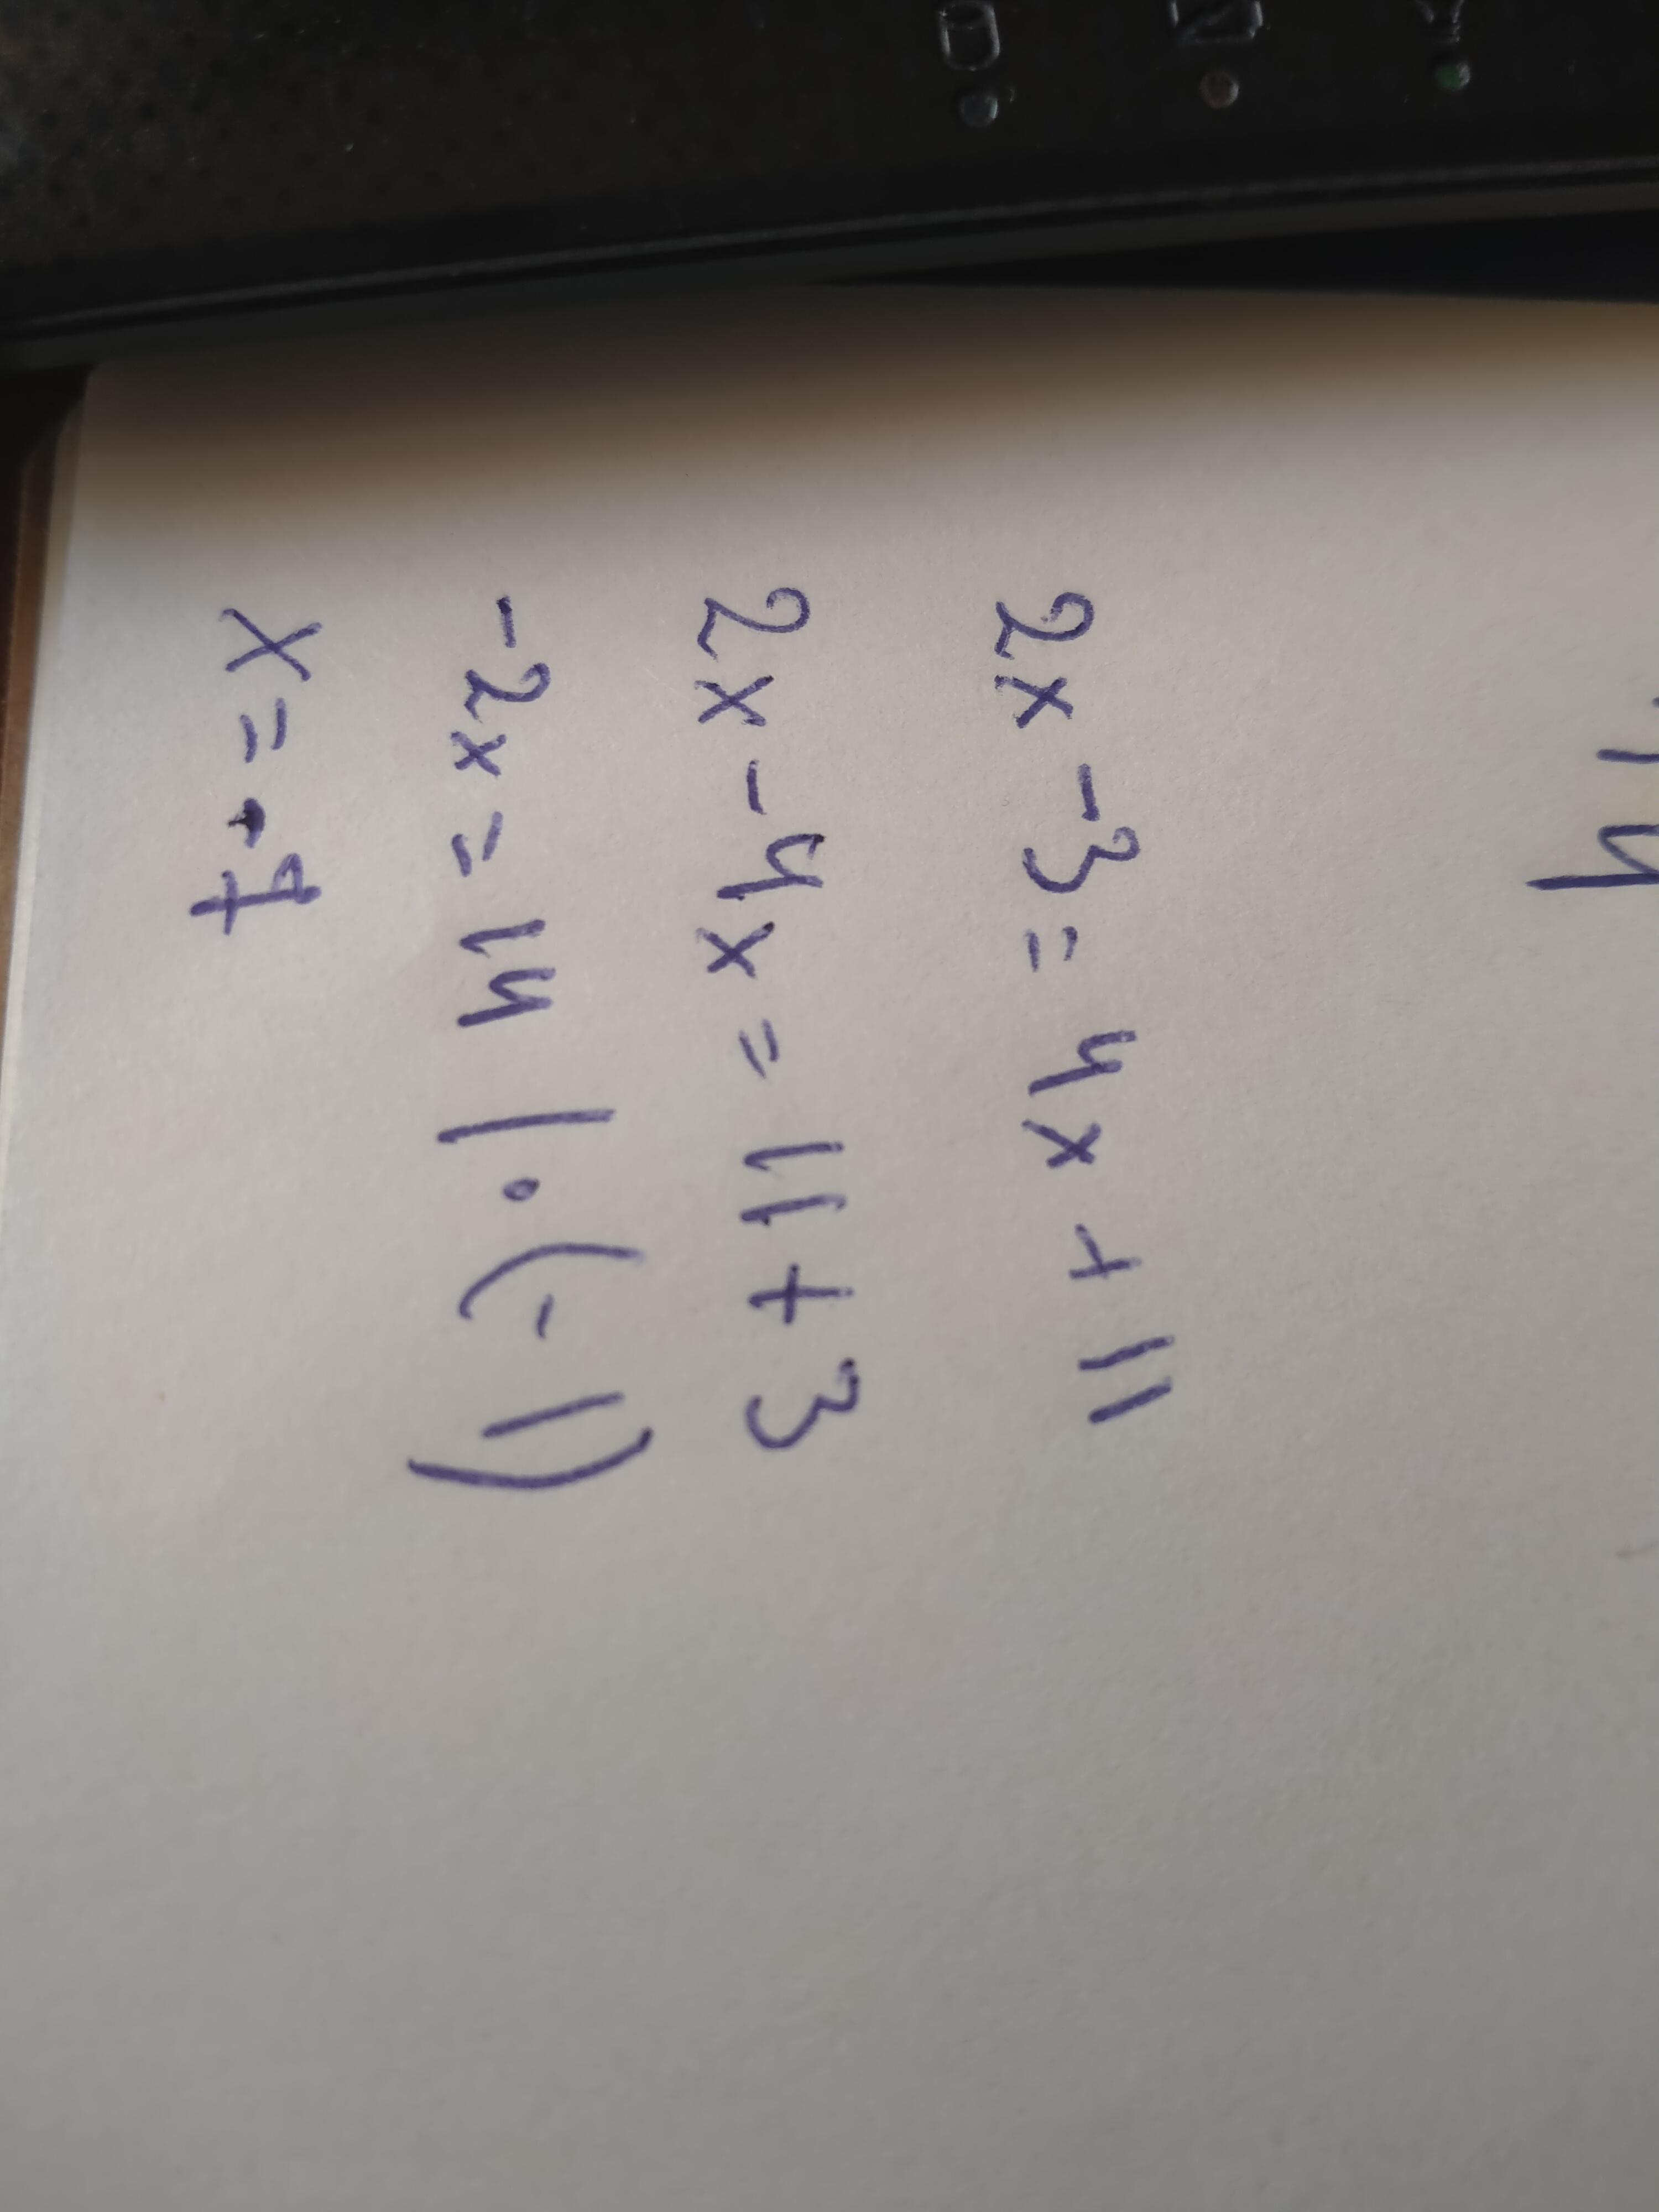 2x - 3 = 4x + 11
2x - 4x = 11 + 3
-2x = 14 | · (-1)
x = -7